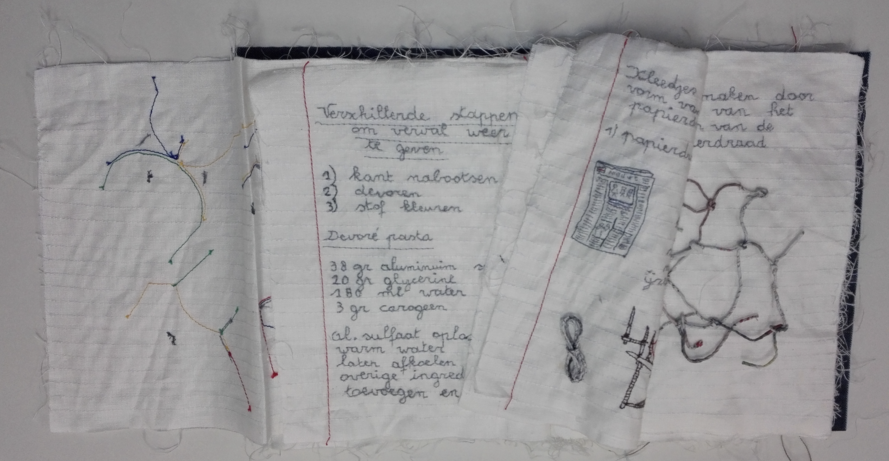 Verschillende stappen
om verval weer
te geven
1) kant nabootsen
2) devoren
3) stof kleuren
Devoré pasta
38 gr aluminium s
20 gr glycerine
180 ml water
3 gr carogeen
al. sulfaat oplo
warm water
laten afkoelen
overige ingred
toevoegen en
Kleedjes maken door
vorm va van het
papieren van de
1) papieren
erdraad